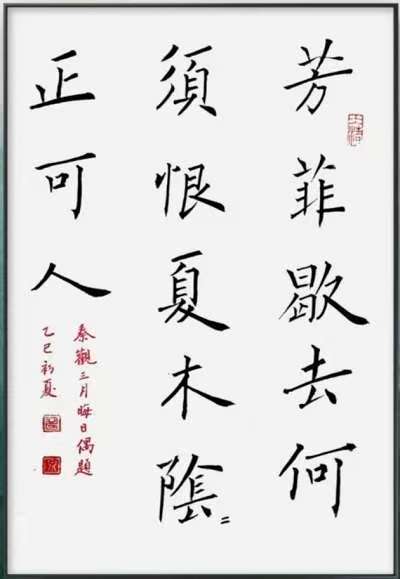 芳菲歇去何
須恨夏木陰〻
正可人
秦觀三月晦日偶題
乙巳初夏